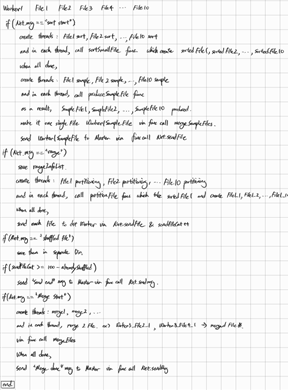 Worker1 File1 File2 File3 File4 ... File10
if (Net.msg == "sort start")
create threads : File1 sort, File2 sort, ..., File10 sort
and in each thread, call sortSmallFile func which create sorted File1, sorted File2, ..., sorted File10
when all done,
create threads : File1 sample, File2 sample, ..., File10 sample
and in each thread, call produceSampleFile func
as a result, SampleFile1, SampleFile2, ..., SampleFile10 produced.
make it one single File Worker1SampleFile via func call mergeSampleFiles.
Send Worker1SampleFile to Master via func call Net.sendFile
if (Net.msg == "range")
save rangeInfoList
create threads : File1 partitioning, File2 partitioning, ... File10 partitioning
and in each thread, call partitionFile func which
when all done,
send each File to dst Worker via Net.sendFile & sendFileCnt++
if (Net.msg == "shuffled file")
save them in separate Dir.
if (sendFileCnt >= 100 - alreadyShuffled)
send "Send end" msg to Master via func call Net.sendMsg.
if (Net.msg == "Merge Start")
create threads : merge1, merge2, ...
and in each thread, merge 2 File.
via func call mergeFiles
when all done,
send "Merge done" msg to Master via func call Net.sendMsg
end